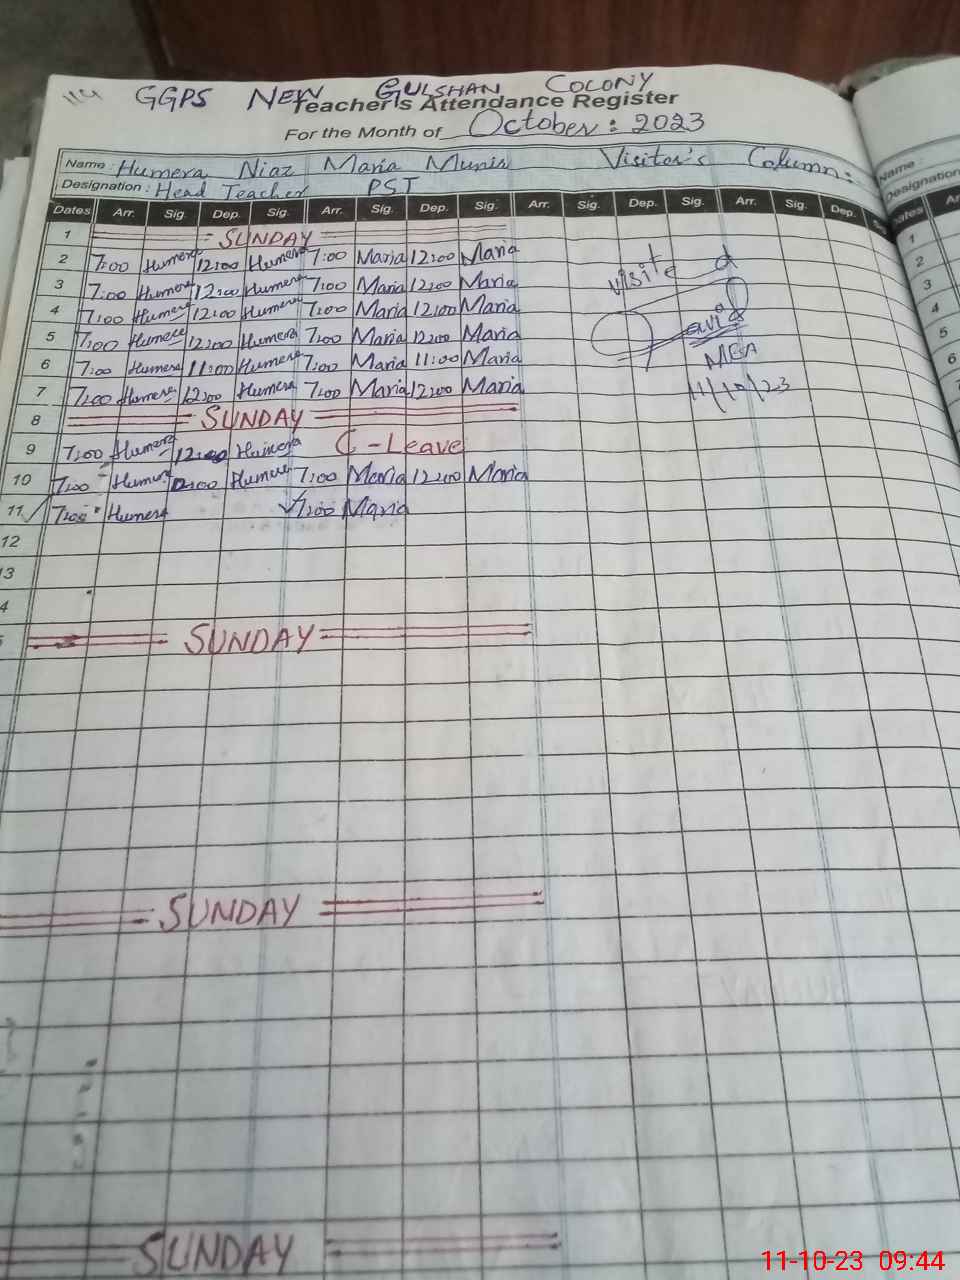 114 GGPS NEW GULSHAN COLONY
Teacher's Attendance Register
For the Month of October : 2023
Name : Humera Niaz Maria Munir Visitor's Column:
Designation : Head Teacher PST
Dates Arr. Sig. Dep. Sig. Arr. Sig. Dep. Sig. Arr. Sig. Dep. Sig. Arr. Sig. Dep.
1 SUNDAY
2 7:00 Humera 12:00 Humera 7:00 Maria 12:00 Maria
3 7:00 Humera 12:00 Humera 7:00 Maria 12:00 Maria
4 7:00 Humera 12:00 Humera 7:00 Maria 12:00 Maria
5 7:00 Humera 12:00 Humera 7:00 Maria 12:00 Maria
6 7:00 Humera 11:00 Humera 7:00 Maria 11:00 Maria
7 7:00 Humera 12:00 Humera 7:00 Maria 12:00 Maria
8 SUNDAY
9 7:00 Humera 12:00 Humera C-Leave
10 7:00 Humera 12:00 Humera 7:00 Maria 12:00 Maria
11 7:00 Humera 7:00 Maria
12
13
4
5 SUNDAY
SUNDAY
SUNDAY
Visited
MEA
11/10/23
Name
Designation
ates Ar
1
2
3
4
5
6
11-10-23 09:44